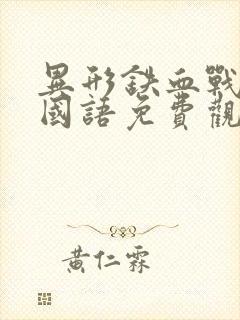 異形鉄血戰
國語免費觀
黃仁霖